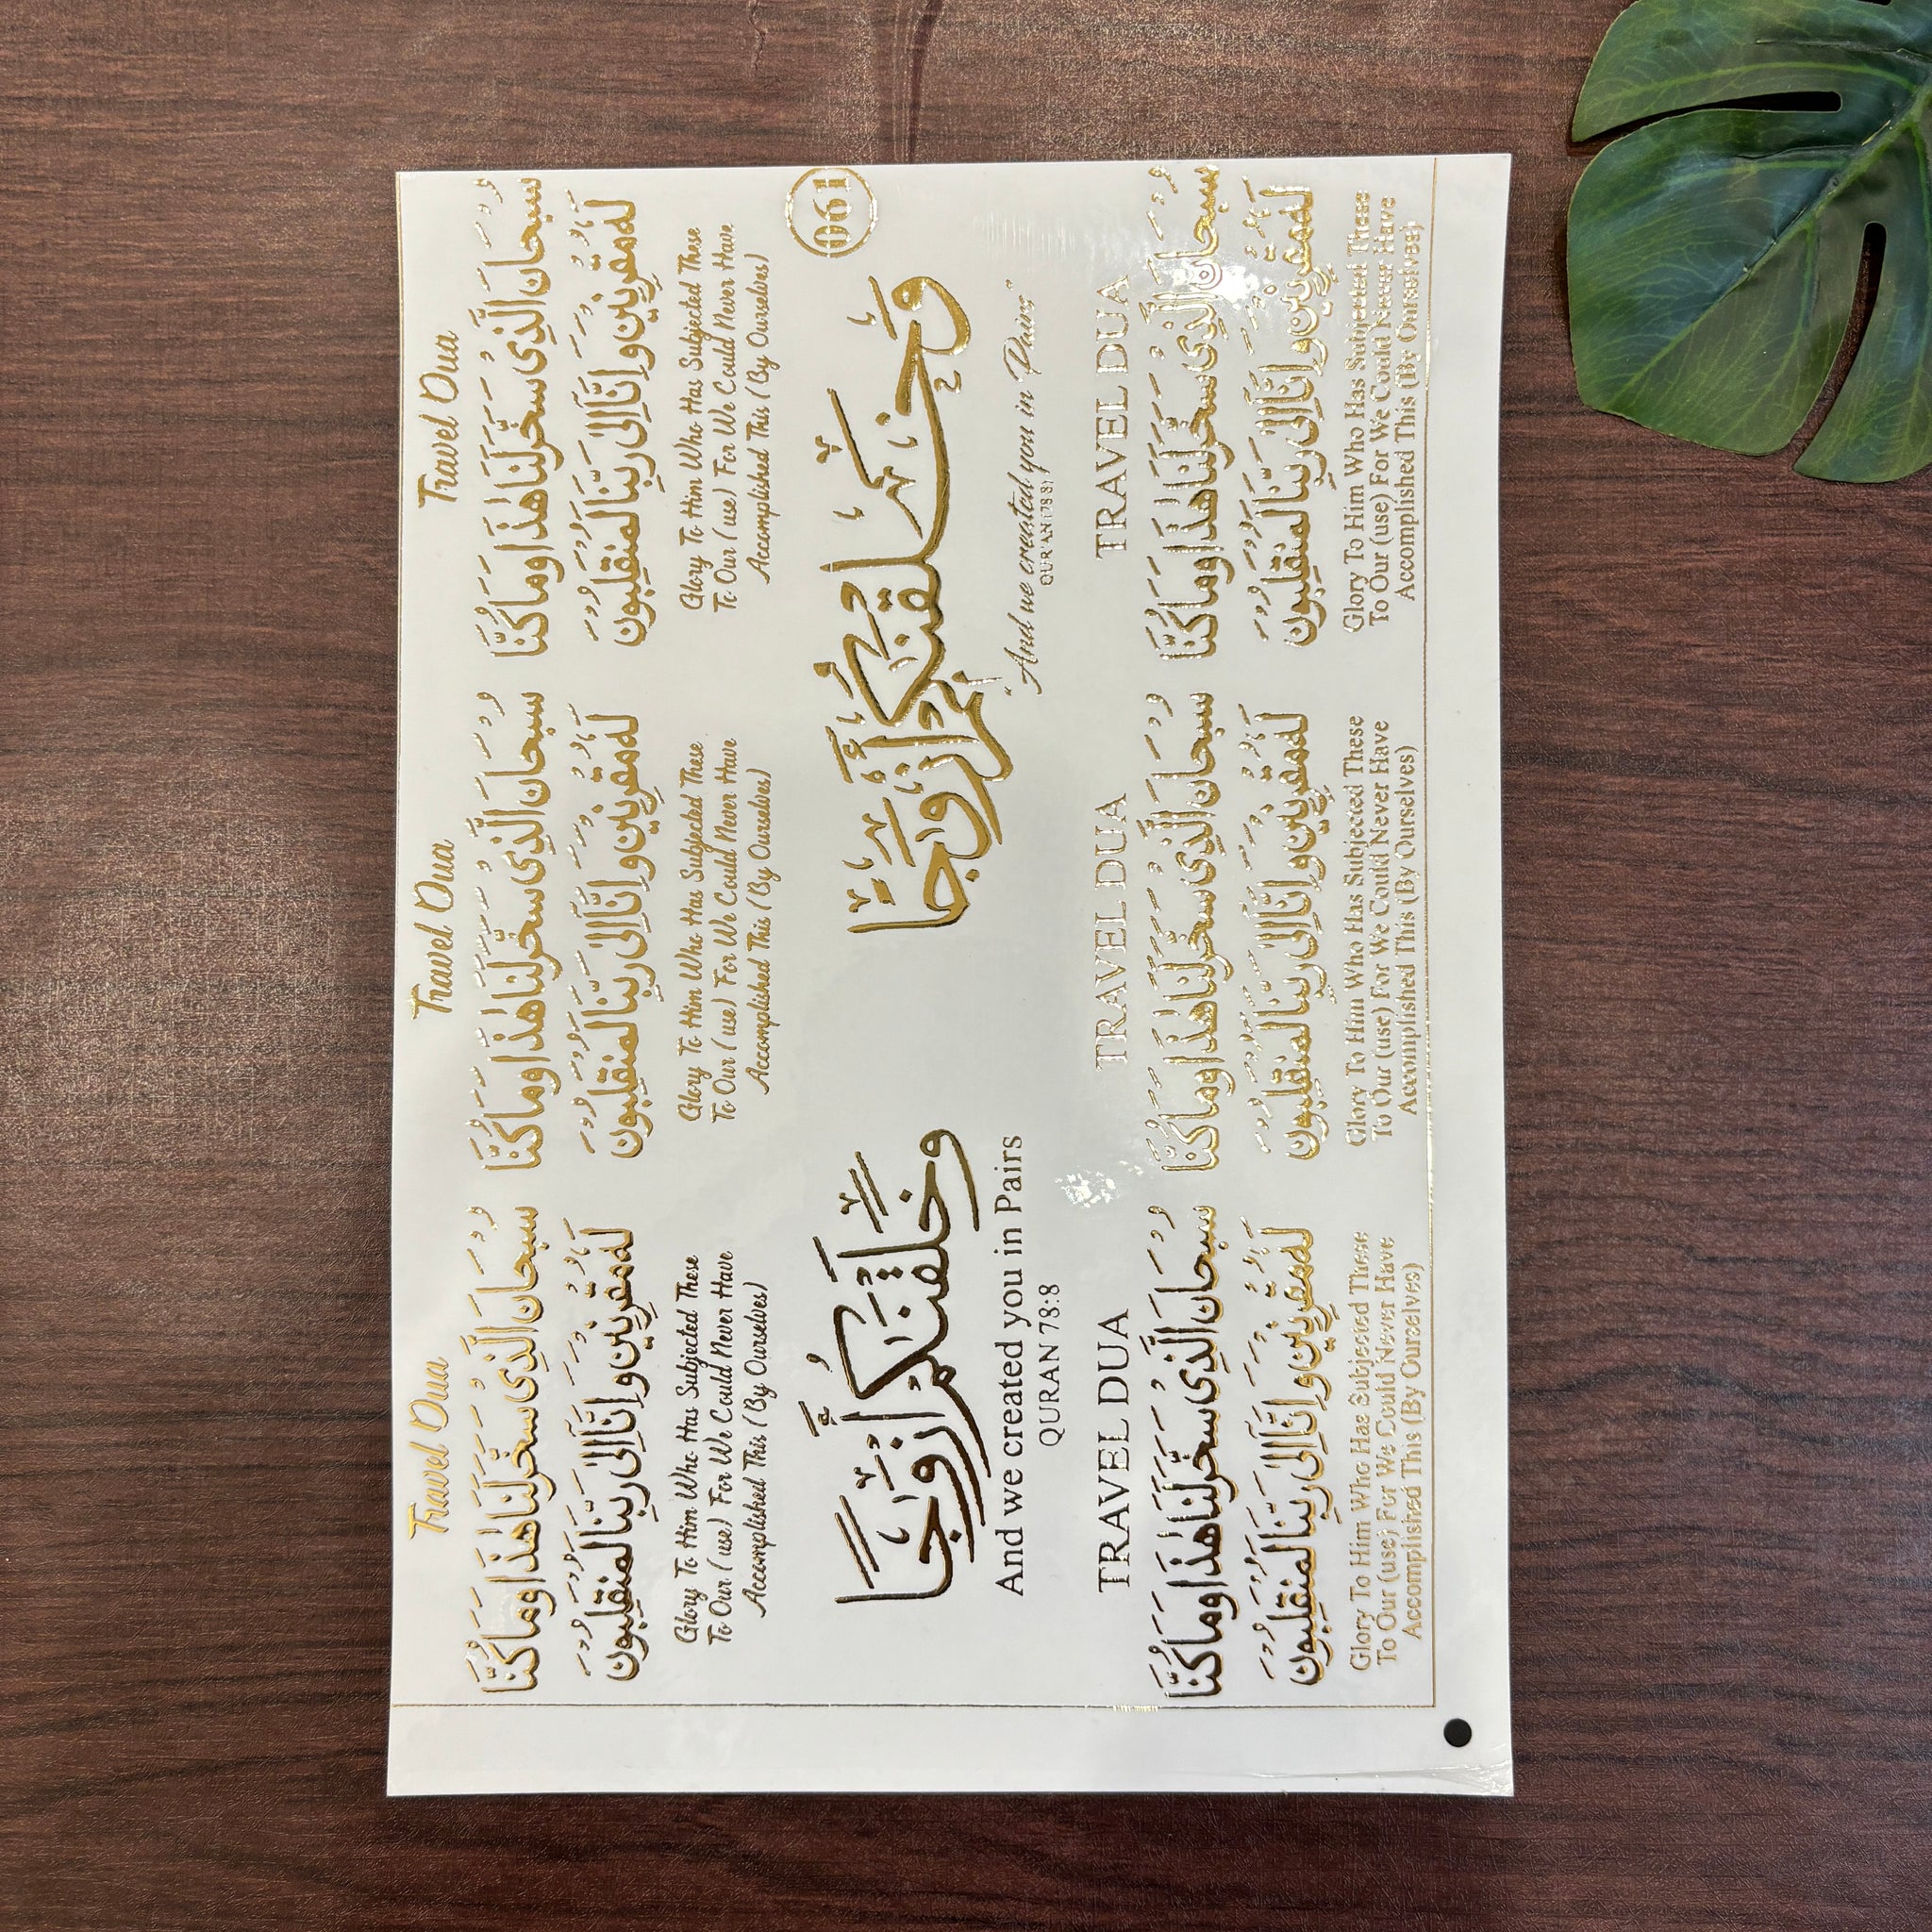 Travel Dua
سُبْحَانَ الَّذِى سَخَّرَ لَنَا هٰذَا وَمَا كُنَّا
لَهُ مُقْرِنِينَ وَإِنَّا إِلَىٰ رَبِّنَا لَمُنقَلِبُونَ
Glory To Him Who Has Subjected These
To Our (use) For We Could Never Have
Accomplished This (By Ourselves)
Travel Dua
سُبْحَانَ الَّذِى سَخَّرَ لَنَا هٰذَا وَمَا كُنَّا
لَهُ مُقْرِنِينَ وَإِنَّا إِلَىٰ رَبِّنَا لَمُنقَلِبُونَ
Glory To Him Who Has Subjected These
To Our (use) For We Could Never Have
Accomplished This (By Ourselves)
Travel Dua
سُبْحَانَ الَّذِى سَخَّرَ لَنَا هٰذَا وَمَا كُنَّا
لَهُ مُقْرِنِينَ وَإِنَّا إِلَىٰ رَبِّنَا لَمُنقَلِبُونَ
Glory To Him Who Has Subjected These
To Our (use) For We Could Never Have
Accomplished This (By Ourselves)
وَخَلَقْنَٰكُمْ أَزْوَٰجًا
And we created you in Pairs
QURAN 78:8
وَخَلَقْنَٰكُمْ أَزْوَٰجًا
"And we created you in Pairs"
QUR'AN (78:8)
061
TRAVEL DUA
سُبْحَانَ الَّذِى سَخَّرَ لَنَا هٰذَا وَمَا كُنَّا
لَهُ مُقْرِنِينَ وَإِنَّا إِلَىٰ رَبِّنَا لَمُنقَلِبُونَ
Glory To Him Who Has Subjected These
To Our (use) For We Could Never Have
Accomplished This (By Ourselves)
TRAVEL DUA
سُبْحَانَ الَّذِى سَخَّرَ لَنَا هٰذَا وَمَا كُنَّا
لَهُ مُقْرِنِينَ وَإِنَّا إِلَىٰ رَبِّنَا لَمُنقَلِبُونَ
Glory To Him Who Has Subjected These
To Our (use) For We Could Never Have
Accomplished This (By Ourselves)
TRAVEL DUA
سُبْحَانَ الَّذِى سَخَّرَ لَنَا هٰذَا وَمَا كُنَّا
لَهُ مُقْرِنِينَ وَإِنَّا إِلَىٰ رَبِّنَا لَمُنقَلِبُونَ
Glory To Him Who Has Subjected These
To Our (use) For We Could Never Have
Accomplished This (By Ourselves)